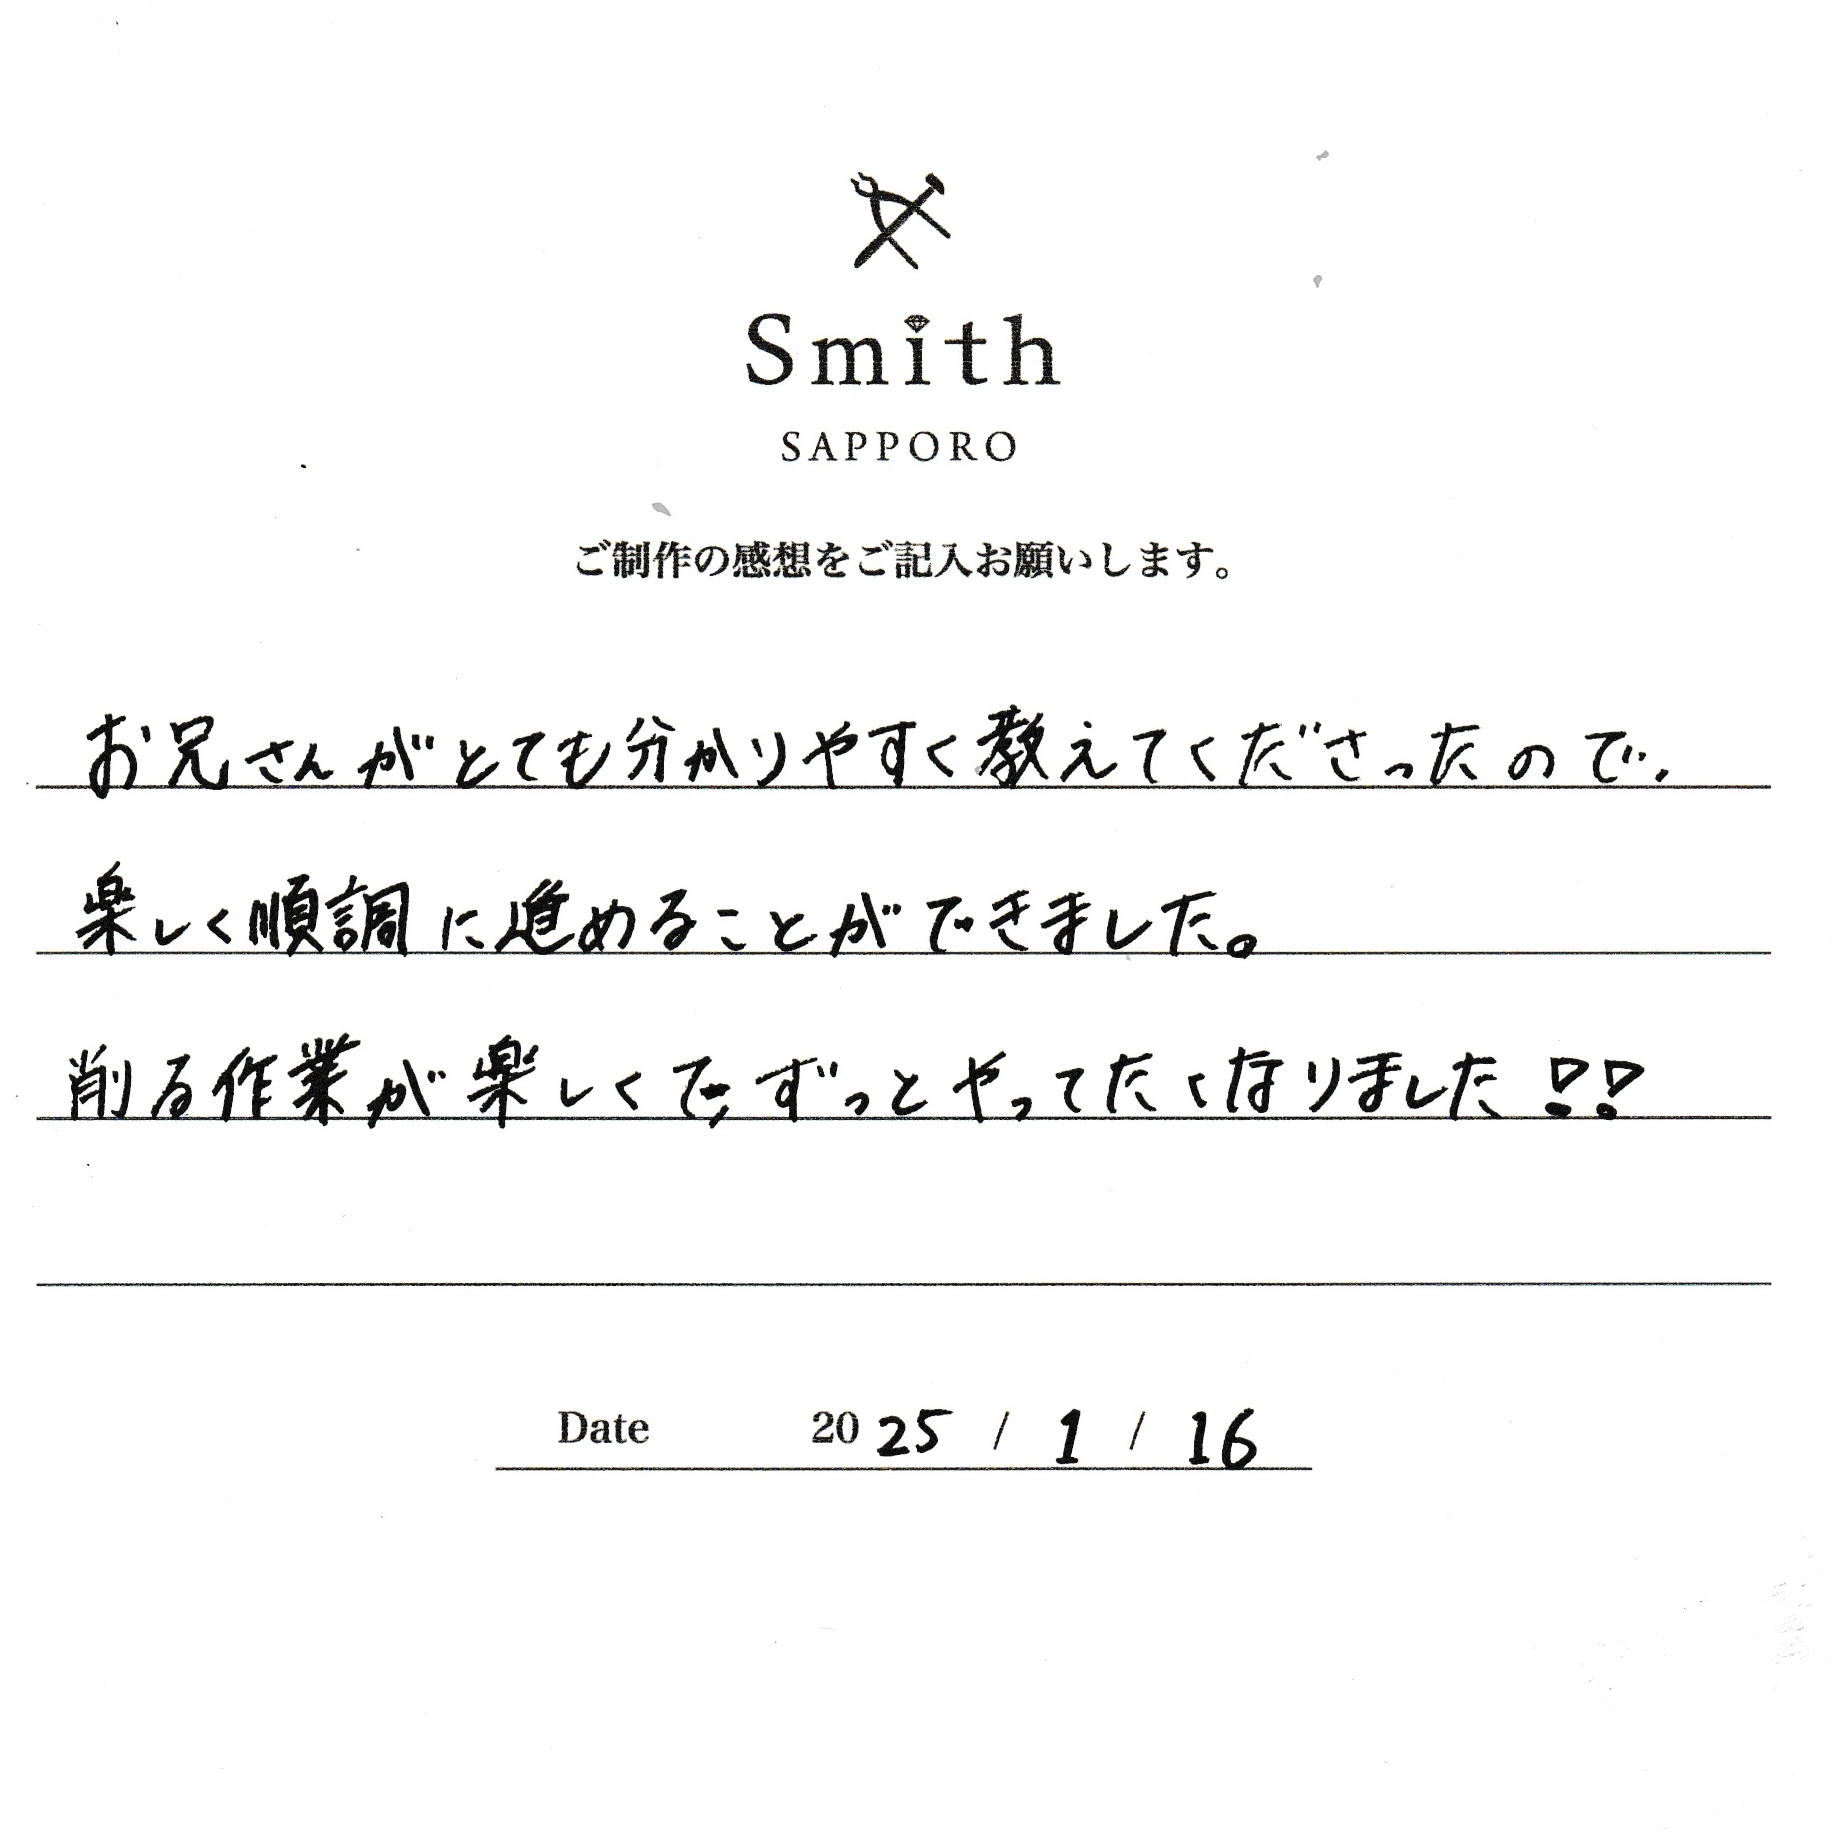 Smith
SAPPORO
ご制作の感想をご記入お願いします。
お兄さんがとても分かりやすく教えてくださったので、
楽しく順調に進めることができました。
削る作業が楽しくて、ずっとやってたくなりました!!
Date 2025 / 1 / 16